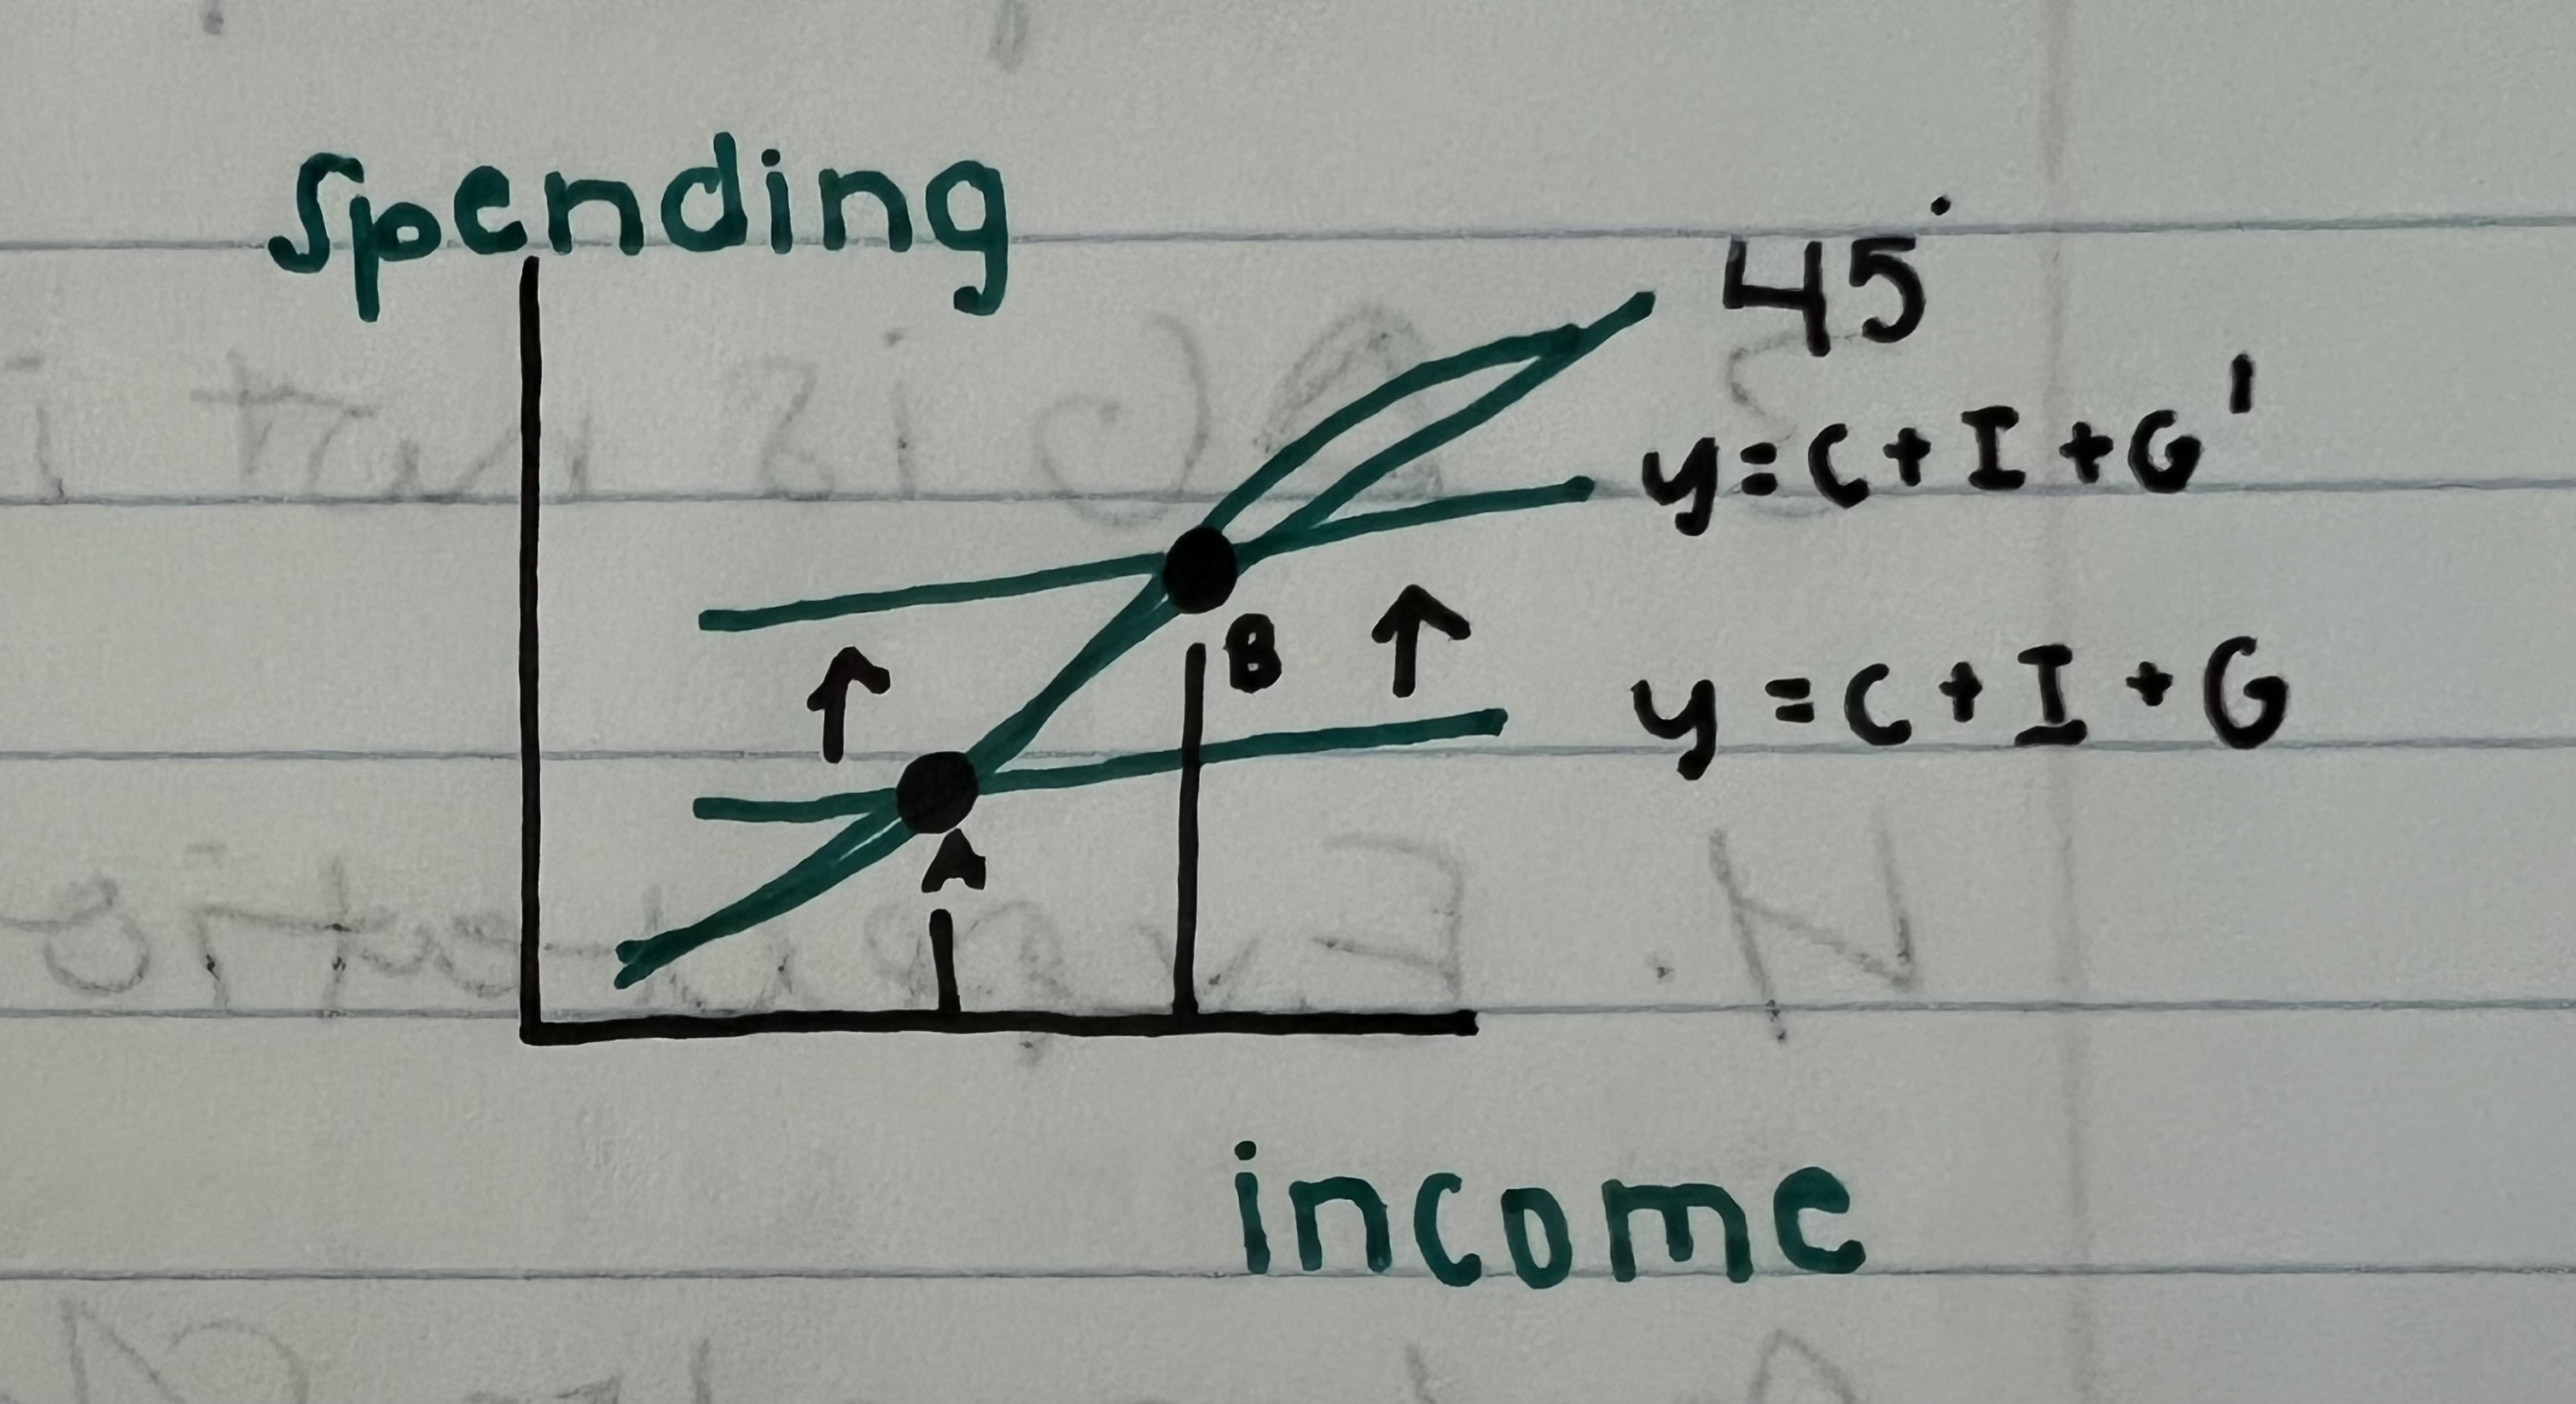 Spending
45°
y = C + I + G'
B
y = C + I + G
A
income